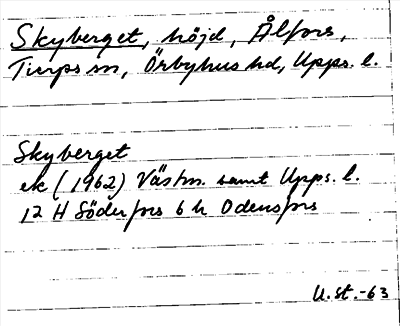 Skyberget, höjd, Ålfors,
Tierps sn, Örbyhus hd, Upps. l.
Skyberget
ek (1962) Västm. samt Upps. l.
12 H Söderfors 6 h Odensfors
U.st.-63